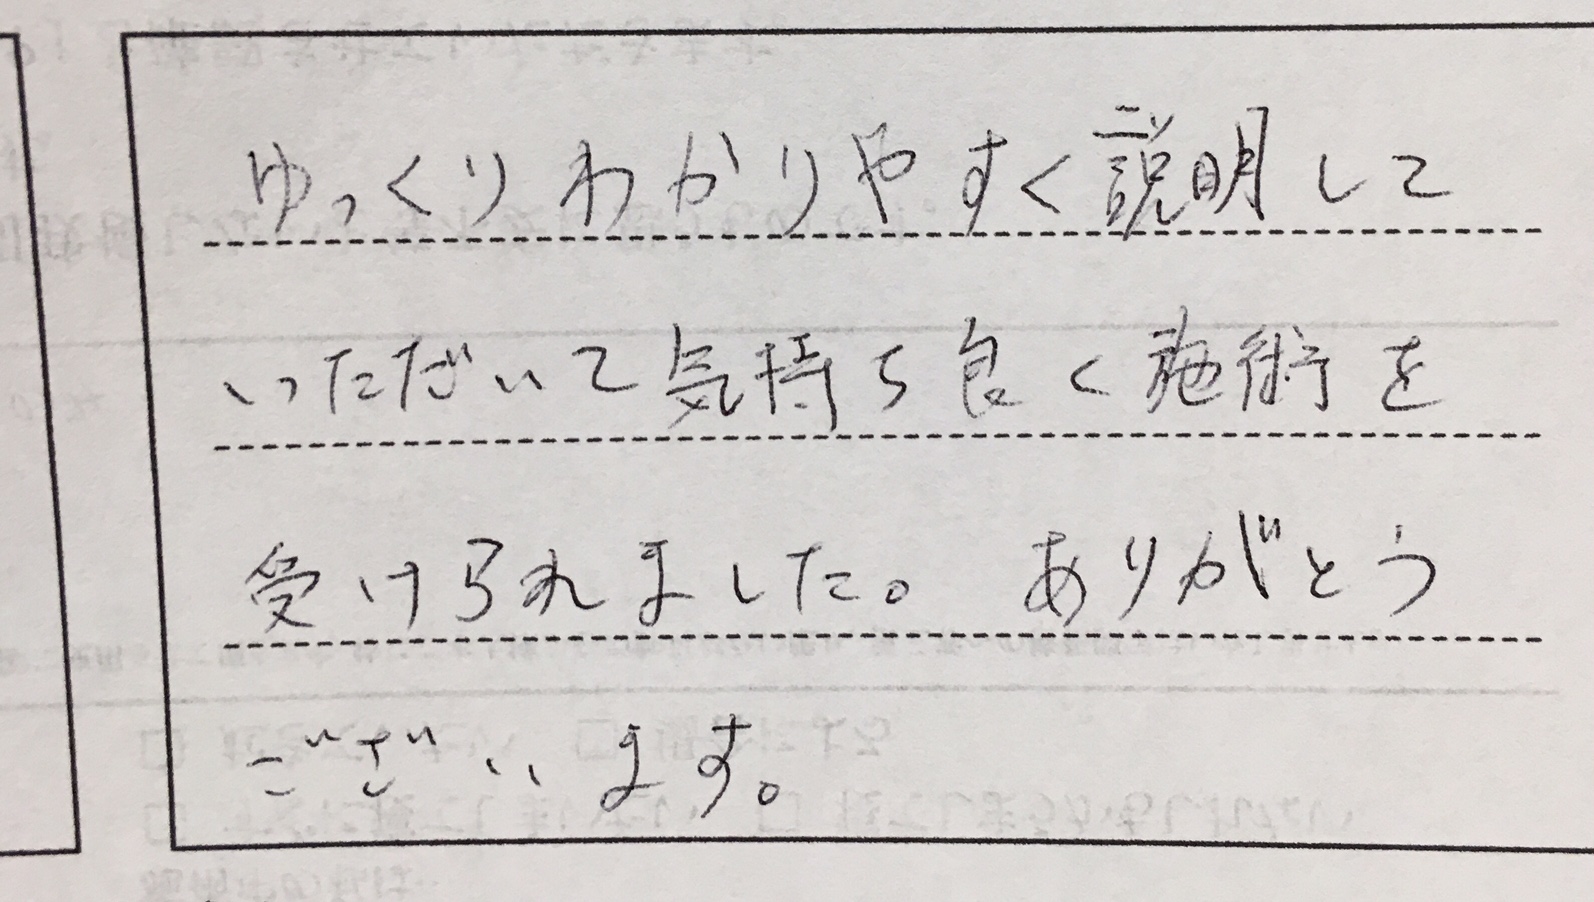 ゆっくりわかりやすくご説明して
いただいて気持ち良く施術を
受けられました。 ありがとう
ございます。